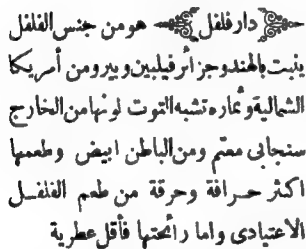 دار فلفل هو من جنس الفلفل
ينبت بالهند وجزائر فيليبين وبيرو من أمريكا
الشمالية وثماره تشبه التوت لونها من الخارج
سنجابى معتم ومن الباطن ابيض وطعمها
اكثر حرافة وحرقة من طعم الفلفل
الاعتيادى واما رائحتها فأقل عطرية